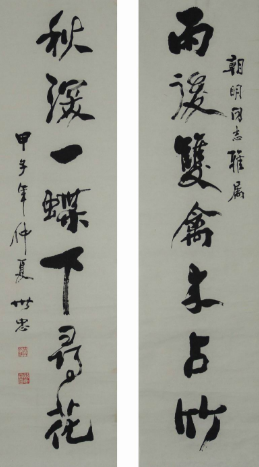 朝明同志雅属
雨後雙禽来占竹
秋深一蝶下尋花
甲子年仲夏 世忠